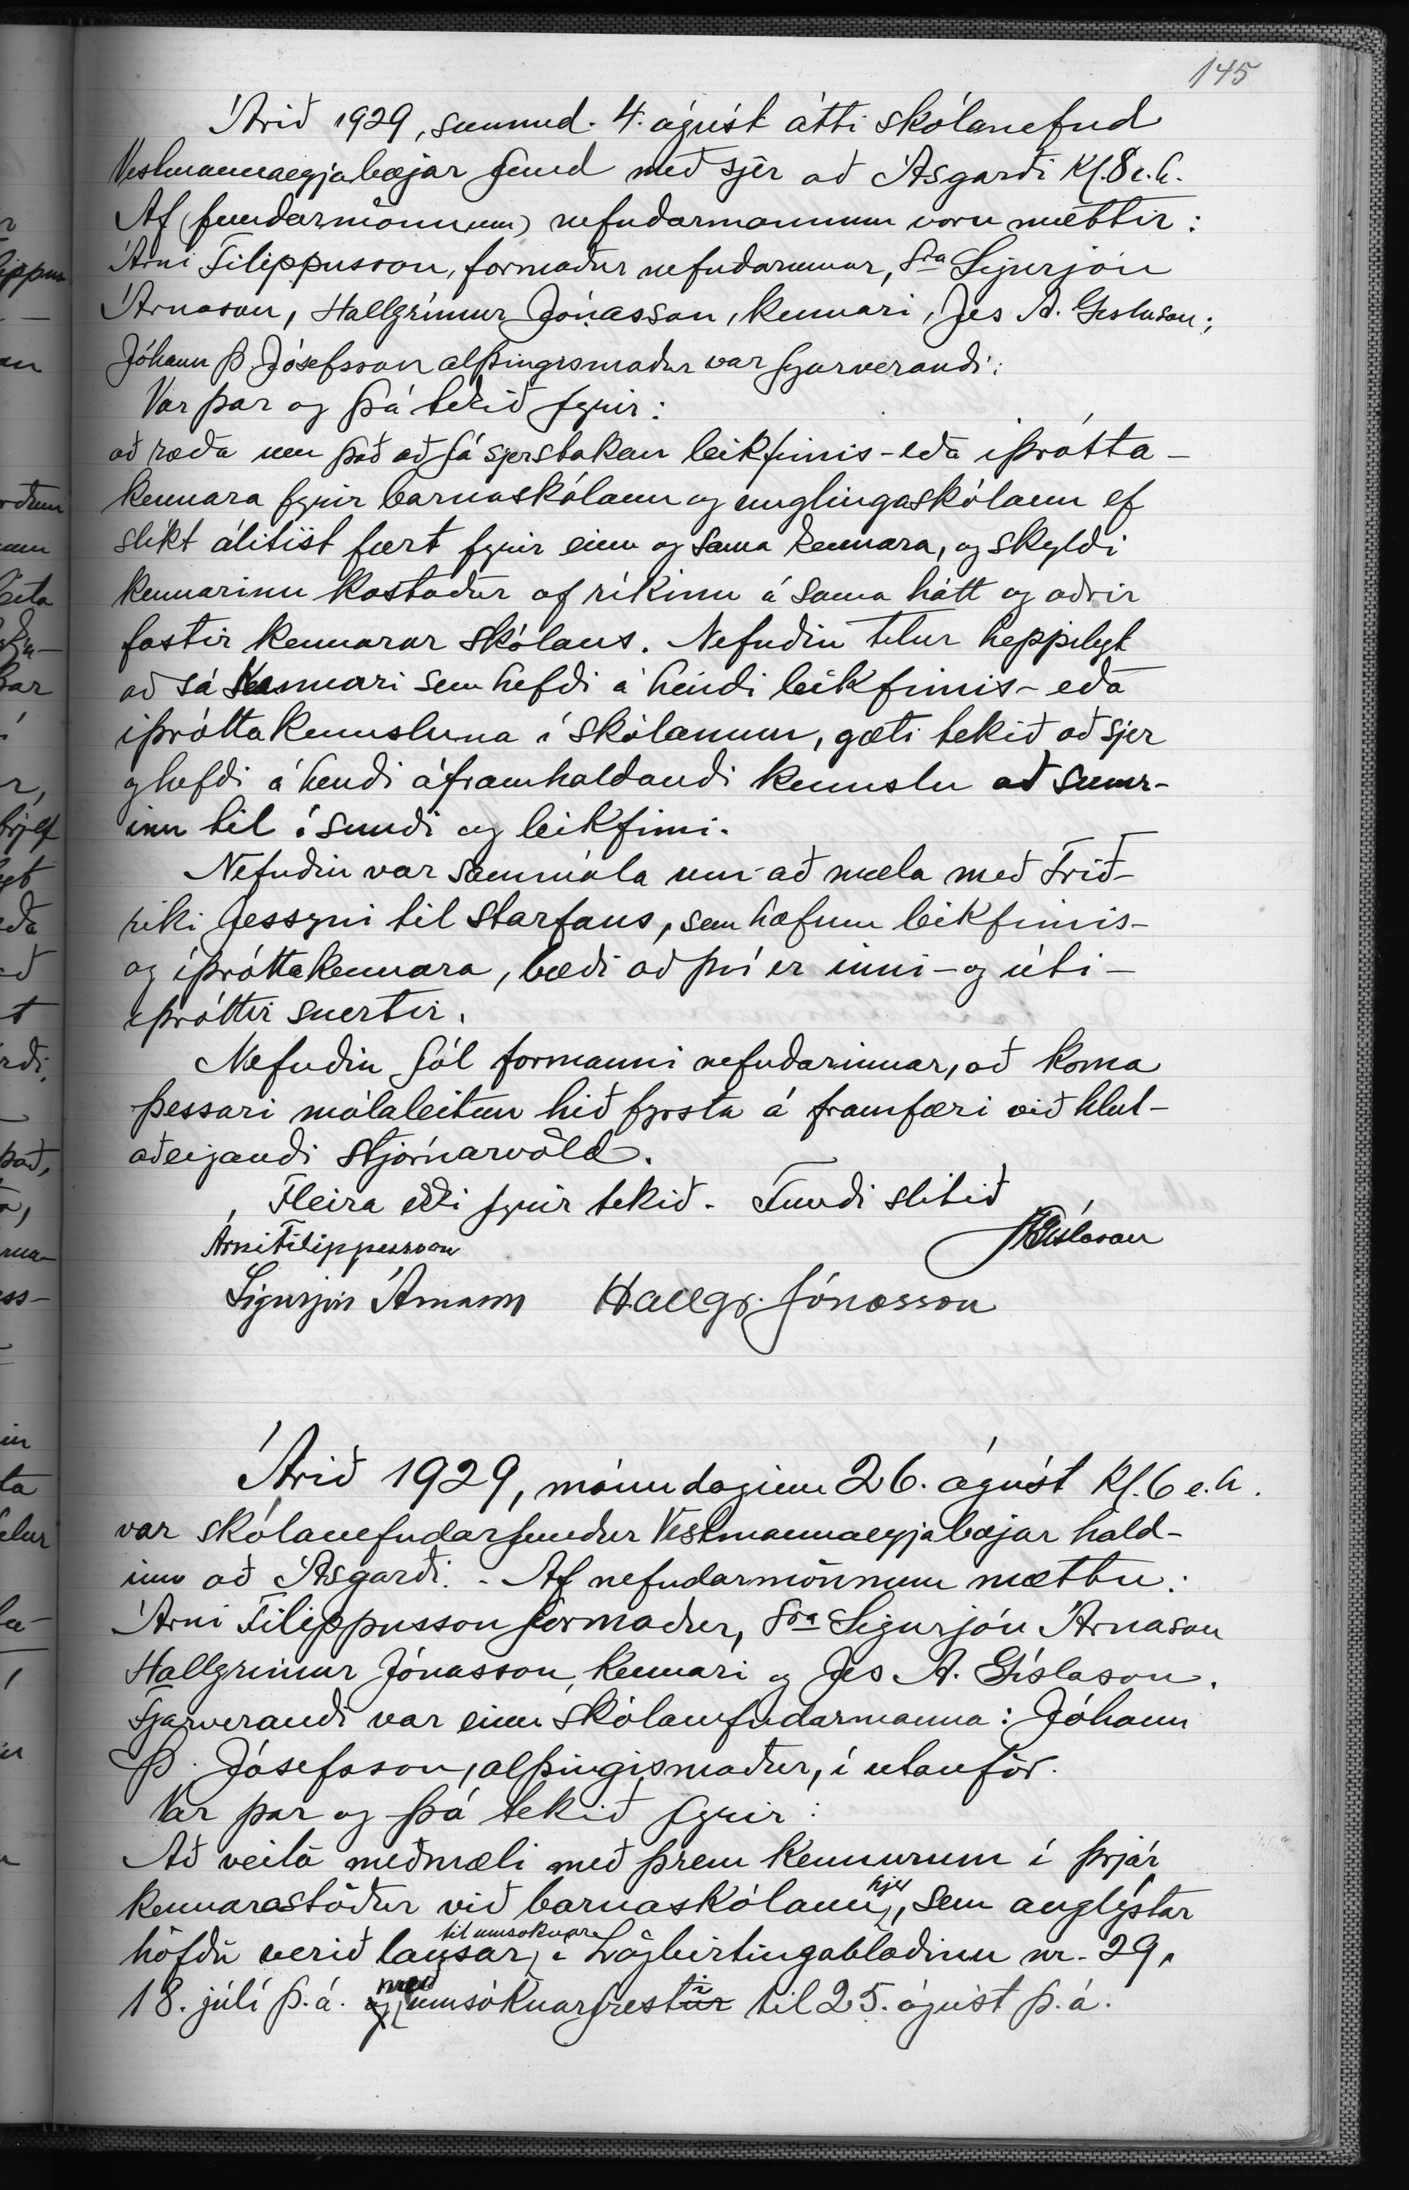 145
Árið 1929, sunnud. 4. ágúst átti skólanefnd
Vestmannaeyjabæjar fund með sjer að Ásgarði Kl. 8 e.h.
Af (fundarmönnum) nefndarmönnum voru mættir:
Árni Filippusson, formaður nefndarinnar, Sra Sigurjón
Árnason, Hallgrímur Jónasson, kennari, Jes A. Gíslason;
Jóhann Þ. Jósefsson alþingismaður var fjarverandi:
Var þar og þá tekið fyrir:
að ræða um það að fá sjerstakan leikfimis- eða íþrótta-
kennara fyrir barnaskólann og unglingaskólann ef
slíkt álitist fært fyrir einn og sama kennara, og skyldi
kennarinn kostaður af ríkinu á sama hátt og aðrir
fastir kennarar skólans. Nefndin telur heppilegt
að sá kennari sem hefði á hendi leikfimis- eða
íþróttakennsluna í skólanum, gæti tekið að sjer
og hefði á hendi áframhaldandi kennslu að sumr-
inu til í sundi og leikfimi.
Nefndin var sammála um að mæla með Frið-
riki Jessyni til starfans, sem hæfum leikfimis-
og íþróttakennara, bæði að því er inni- og úti-
íþróttir snertir.
Nefndin fól formanni nefndarinnar, að koma
þessari málaleitun hið fyrsta á framfæri við hlut-
aðeigandi stjórnarvöld.
Fleira ekki fyrir tekið. Fundi slitið
Árni Filippusson JAGíslason
Sigurjón Árnason Hallgr. Jónasson
Árið 1929, mánudaginn 26. ágúst Kl. 6 e.h.
var skólanefndarfundur Vestmannaeyjabæjar hald-
inn að Ásgarði. - Af nefndarmönnum mættu:
Árni Filippusson formaður, Sra Sigurjón Árnason
Hallgrímur Jónasson, kennari og Jes A. Gíslason.
Fjarverandi var einn skólanefndarmanna: Jóhann
Þ. Jósefsson, alþingismaður, í utanför.
Var þar og þá tekið fyrir:
Að veita meðmæli með þrem kennurum í þrjár
kennarastöður við barnaskólann hjer, sem auglýstar
höfðu verið lausar til umsóknar í Lögbirtingablaðinu nr. 29,
18. júlí þ.á. og með umsóknarfresti til 25. ágúst þ.á.